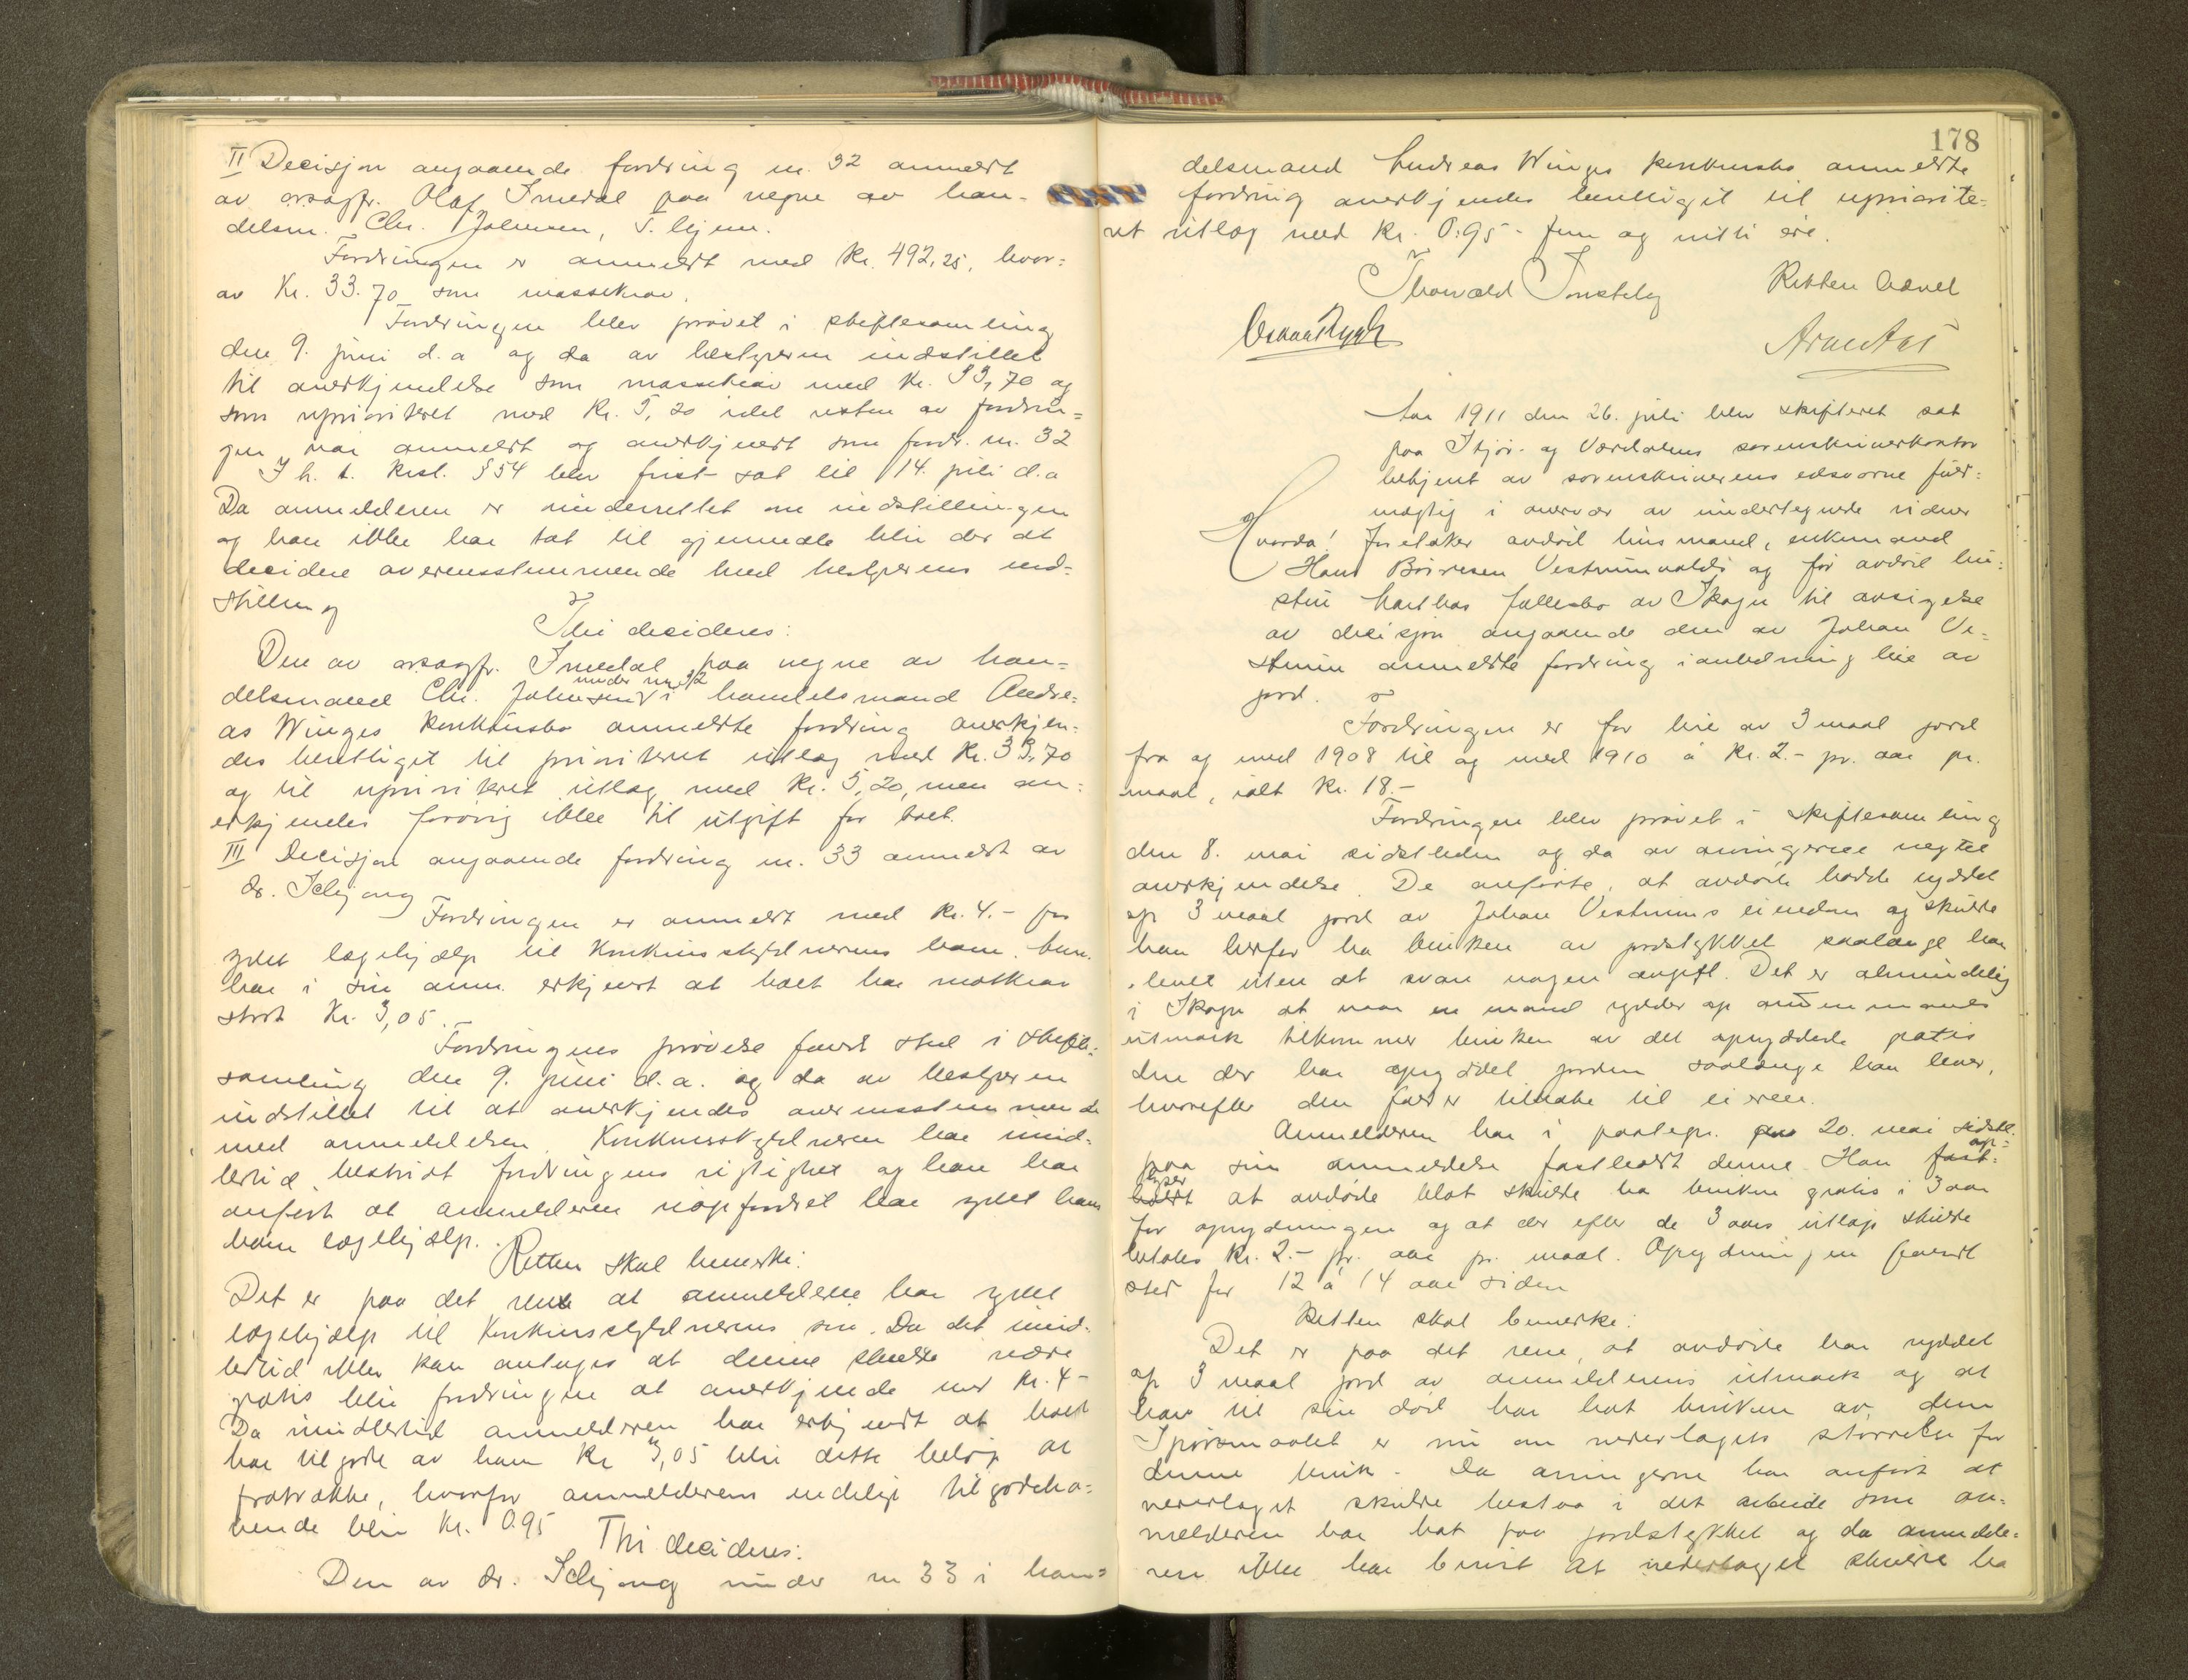 II Decisjon angaaende fordring nr. 32 anmeldt
av orsagfr. Olaf Smedal paa vegne av han-
delsm. Chr. Johnsen, T.hjem.
Fordringen er anmeldt med Kr. 492,25, hvor-
av Kr. 33.70 som massekrav.
Fordringen blev prøvet i skiftesamling
den 9. juni d.a og da av bestyreren indstillet
til anerkjendelse som massekrav med Kr. 33,70 og
som uprioriteret med Kr. 5,20 idet resten av fordrin-
gen var anmeldt og anerkjendt som fordr. nr. 32
I h. t. Krsl. §54 blev frist sat til 14. juli d.a
Da anmelderen er underrettet om indstillingen
og han ikke har tat til gjenmæle blir der at
decidere overensstemmende med bestyrerens ind-
stilling
Thi decideres:
Den av orsagfr. Smedal paa vegne av han-
delsmand Chr. Johnsen under nr. 32 i handelsmand Andre-
as Winges konkursbo anmeldte fordring anerkjen-
des berettiget til prioritert utlæg med Kr. 33,70
og til uprioritert utlæg med Kr. 5,20, men an-
erkjendes forøvrig ikke til utgift for boet.
III Decisjon angaaende fordring nr. 33 anmeldt av
dr. Schjong
Fordringen er anmeldt med Kr. 4.- for
ydet lægehjælp til konkursskyldnerens barn.
har i sin anm. erkjendt at boet har motkrav
stort Kr. 3,05.
Fordringens prøvelse fandt sted i skifte-
samling den 9. juni d.a. og da av bestyreren
indstillet til at anerkjendes overensstemmende
med anmeldelsen. Konkursskyldneren har imid-
lertid bestridt fordringens rigtighet og han har
anført at anmelderen uopfordret har ydet hans
barn lægehjælp.
Retten skal bemerke:
Det er paa det rene at anmelderen har ydet
lægehjælp til konkursskyldnerens søn. Da det imid-
lertid ikke kan antages at denne skulde være
gratis blir fordringen at anerkjende med Kr. 4-
Da imidlertid anmelderen har erkjendt at boet
har tilgode av ham Kr 3,05 blir dette beløp at
fratrække, hvorfor anmelderens endelige tilgodeha-
vende blir Kr. 0.95
Thi decideres:
Den av dr. Schjong under nr 33 i han-
178
delsmand Andreas Winges konkursbo anmeldte
fordring anerkjendes berettiget til uprioite-
ret utlæg med Kr. 0.95 - fem og nitti øre.
Thorvald Retten hævet
Arne
Aar 1911 den 26. juli blev skifteret sat
paa Stjør- og Værdalens sorenskriverkontor
betjent av sorenskriverens edsvorne fuld-
mægtig i overvær av undertegnede vidner
Hvorda! Foretakes avdød husmand, enkemand
Hans Vestrum og før avdød hu-
stru fællesbo av Skogn til avsigelse
av decisjon angaaende den av Johan Ve-
strum anmeldte fordring i anledning leie av
jord.
Fordringen er for leie av 3 maal jord
fra og med 1908 til og med 1910 á Kr. 2.- pr. aar pr.
maal, ialt Kr. 18.-
Fordringen blev prøvet i skiftesamling
den 8. mai sidstleden og da av arvingerne negtet
anerkjendelse. De anførte, at avdøde hadde ryddet
op 3 maal jord av Johan Vestrums eiendom og skulde
han herfor ha bruken av jordstykket saalænge han
levet uten at svare nogen avgift. Det er almindelig
i Skogn at naar en mand rydder op anden mands
utmark tilkommer bruken av det opryddede gratis
den der har opryddet jorden saalænge han lever,
hvorefter den falder tilbake til eieren.
Anmelderen har i paategn. 20. mai sidstl.
paa sin anmeldelse fastholdt denne. Han op-
lyser at avdøde blot skulde ha bruken gratis i 3 aar
for oprydningen og at der efter de 3 aars utløp skulde
betales Kr. 2.- pr. aar pr. maal. Oprydningen fandt
sted for 12 á 14 aar siden
Retten skal bemerke:
Det er paa det rene, at avdøde har ryddet
op 3 maal jord av anmelderens utmark og at
han til sin død har hat bruken av den
Spørsmaalet er nu om vederlagets størrelse for
denne bruk. Da arvingerne har anført at
vederlaget skulde bestaa i det arbeide som an-
melderen har hat paa jordstykket og da anmelde-
ren ikke har bevist at vederlaget skulde ha